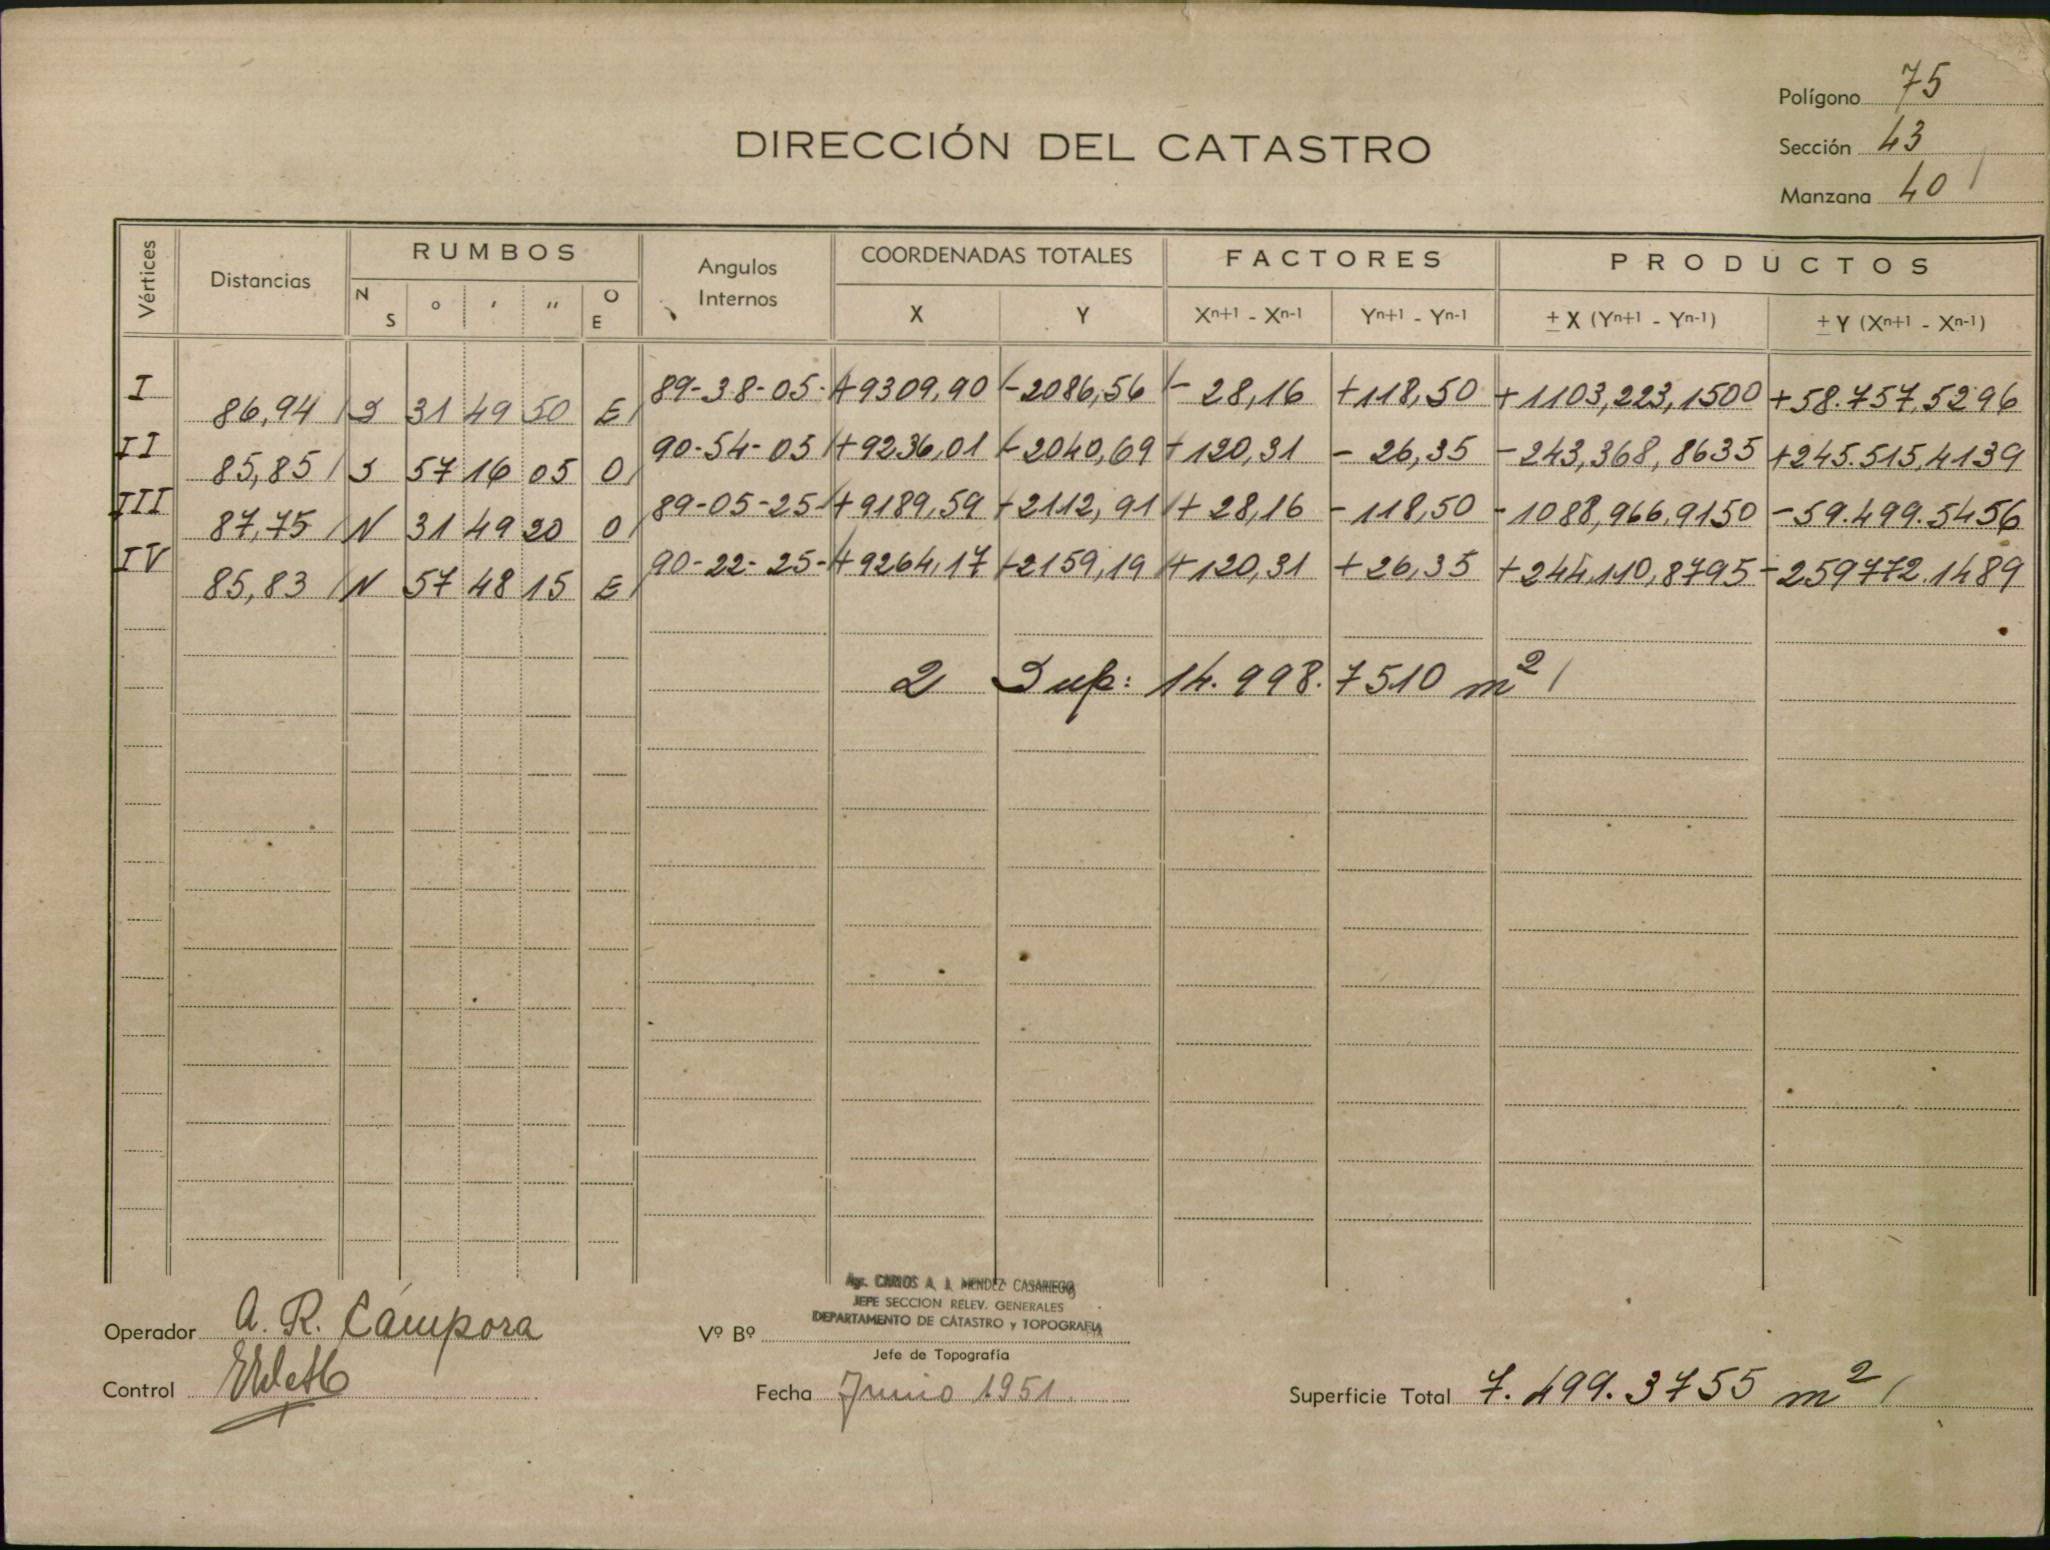 Polígono 75
DIRECCIÓN DEL CATASTRO
Sección 43
Manzana 40
Vértices Distancias RUMBOS Angulos Internos COORDENADAS TOTALES FACTORES PRODUCTOS
N S ° ' " O E X Y Xn+1 - Xn-1 Yn+1 - Yn-1 ± X (Yn+1 - Yn-1) ± Y (Xn+1 - Xn-1)
I 86,94 S 31 49 50 E 89-38-05- +9309,90 -2086,56 - 28,16 +118,50 +1103,223,1500 +58.757,5296
II 85,85 S 57 16 05 O 90-54-05 +9236,01 -2040,69 +120,31 - 26,35 -243,368,8635 +245.515,4139
III 87,75 N 31 49 20 O 89-05-25- +9189,59 +2112,91 + 28,16 -118,50 -1088,966,9150 -59.499.5456
IV 85,83 N 57 48 15 E 90-22-25- +9264,17 -2159,19 +120,31 +26,35 +244,110,8795 -259772.1489
2 Sup: 14.998.7510 m²
Agr. CARLOS A. J. MENDEZ CASARIEGO
JEFE SECCION RELEV. GENERALES
DEPARTAMENTO DE CATASTRO y TOPOGRAFIA
Operador A. R. Cámpora Vº Bº
Jefe de Topografía
Control Fecha Junio 1951. Superficie Total 7.499.3755 m²